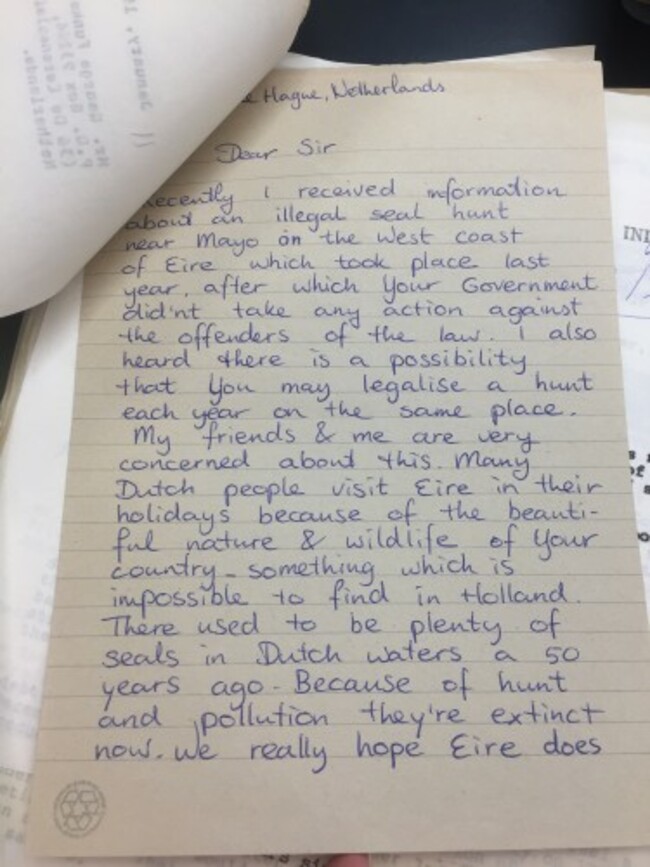 Hague, Netherlands
Dear Sir
Recently I received information
about an illegal seal hunt
near Mayo on the West coast
of Eire which took place last
year, after which Your Government
did'nt take any action against
the offenders of the law. I also
heard there is a possibility
that You may legalise a hunt
each year on the same place.
My friends & me are very
concerned about this. Many
Dutch people visit Eire in their
holidays because of the beauti-
ful nature & wildlife of Your
country - something which is
impossible to find in Holland.
There used to be plenty of
seals in Dutch waters a 50
years ago. Because of hunt
and pollution they're extinct
now. We really hope Eire does